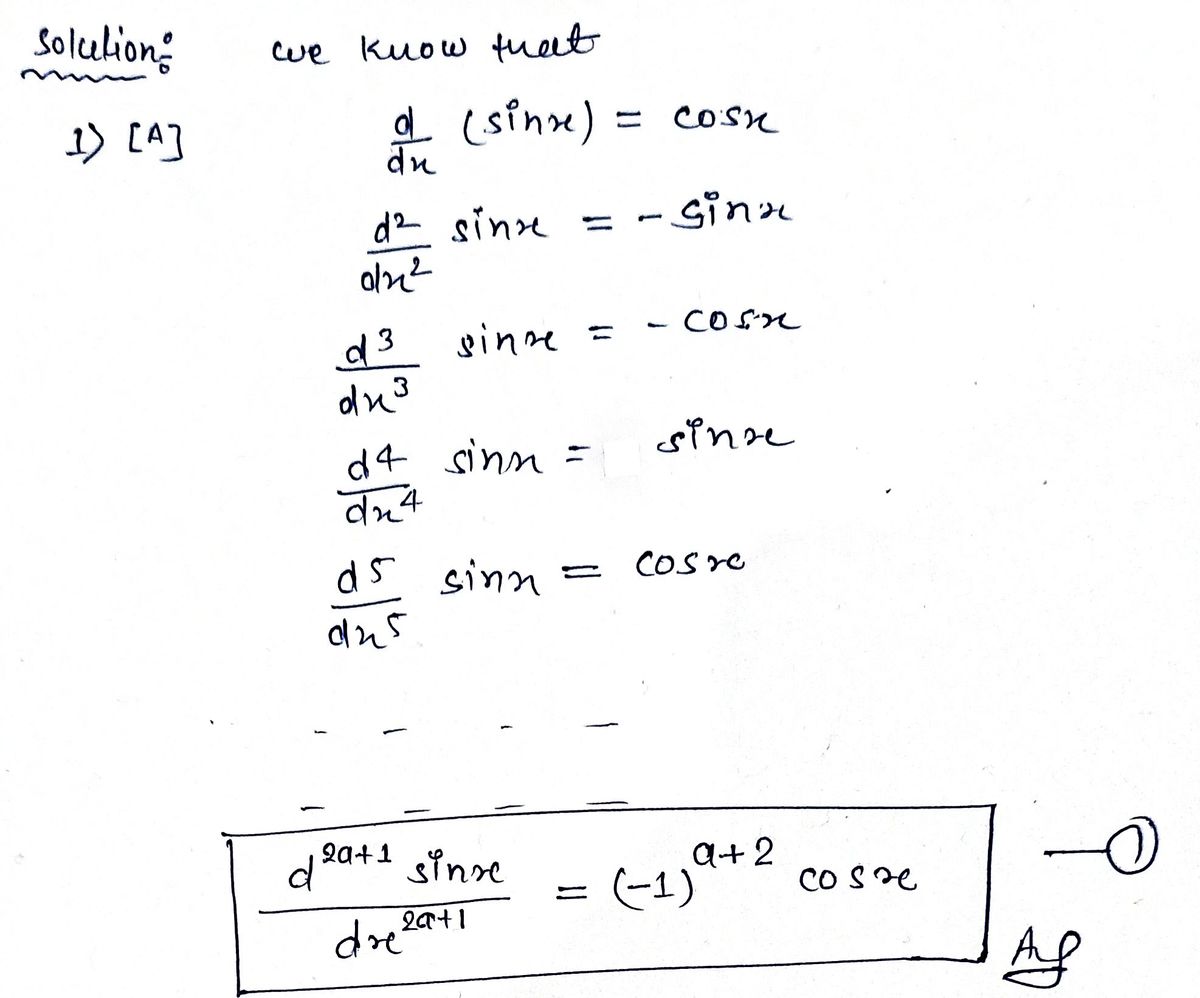 Solution: we know that
1) [A] d/dx (sinx) = cosx
d2/dx2 sinx = - sinx
d3/dx3 sinx = - cosx
d4/dx4 sinx = sinx
d5/dx5 sinx = cosx
- - - -
- - - -
d^2a+1 sinx / dx^2a+1 = (-1)^a+2 cosx — ①